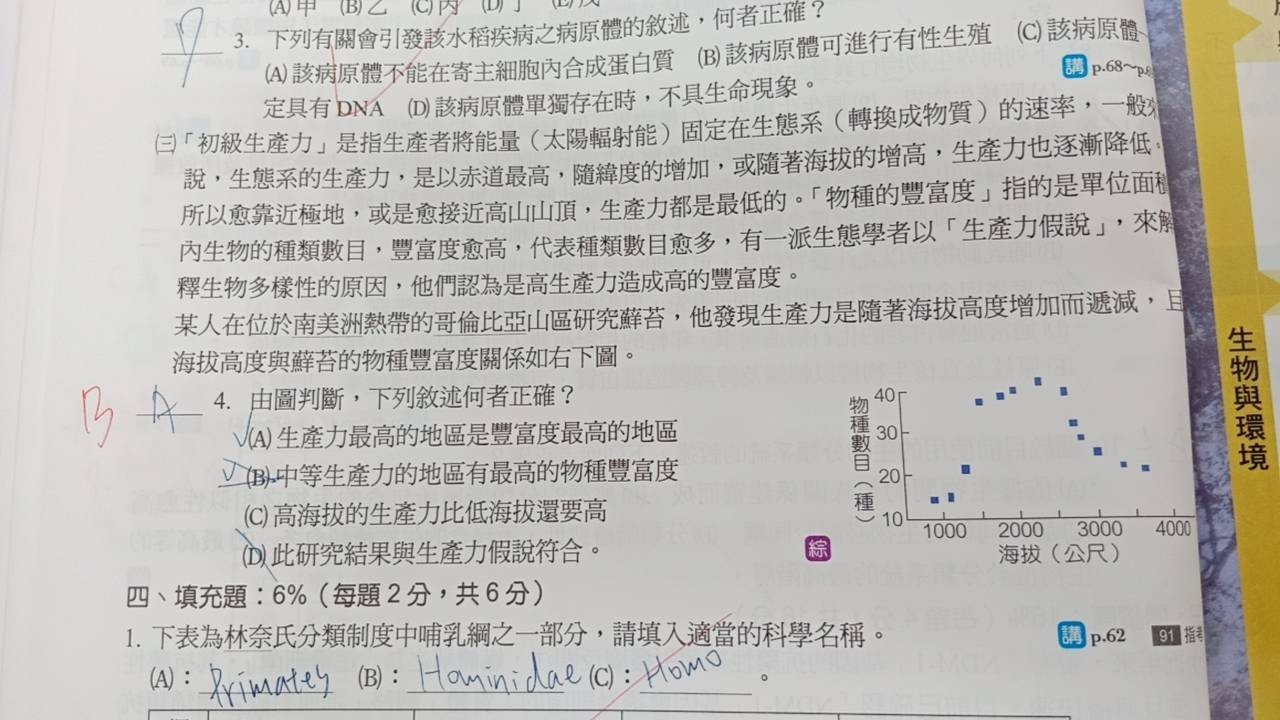 (A)甲 (B)乙 (C)丙 (D)丁 (E)戊
3. 下列有關會引發該水稻疾病之病原體的敘述，何者正確？
(A)該病原體不能在寄主細胞內合成蛋白質 (B)該病原體可進行有性生殖 (C)該病原體
定具有DNA (D)該病原體單獨存在時，不具生命現象。
講 p.68～p.
㈢「初級生產力」是指生產者將能量（太陽輻射能）固定在生態系（轉換成物質）的速率，一般
說，生態系的生產力，是以赤道最高，隨緯度的增加，或隨著海拔的增高，生產力也逐漸降低。
所以愈靠近極地，或是愈接近高山山頂，生產力都是最低的。「物種的豐富度」指的是單位面積
內生物的種類數目，豐富度愈高，代表種類數目愈多，有一派生態學者以「生產力假說」，來解
釋生物多樣性的原因，他們認為是高生產力造成高的豐富度。
某人在位於南美洲熱帶的哥倫比亞山區研究蘚苔，他發現生產力是隨著海拔高度增加而遞減，且
海拔高度與蘚苔的物種豐富度關係如右下圖。
B A 4. 由圖判斷，下列敘述何者正確？
(A)生產力最高的地區是豐富度最高的地區
(B)中等生產力的地區有最高的物種豐富度
(C)高海拔的生產力比低海拔還要高
(D)此研究結果與生產力假說符合。
綜
物種數目（種）
40
30
20
10
1000 2000 3000 4000
海拔（公尺）
四、填充題：6%（每題2分，共6分）
1. 下表為林奈氏分類制度中哺乳綱之一部分，請填入適當的科學名稱。
講 p.62 91 指考
(A)：Primates (B)：Hominidae (C)：Homo。
生物與環境